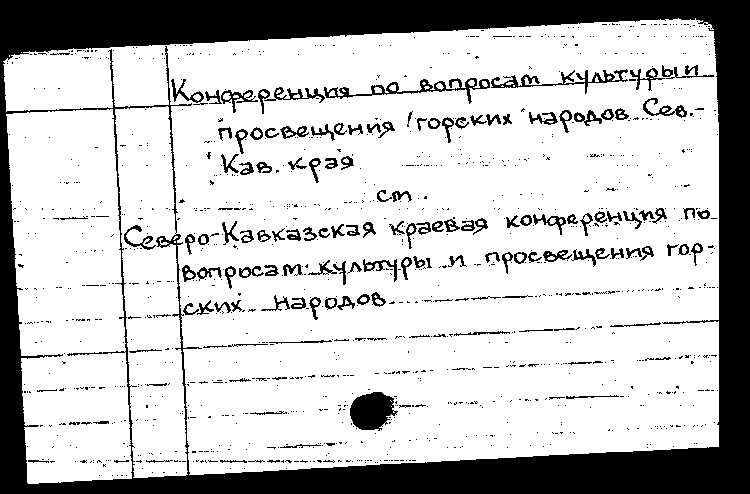 Конференция по вопросам культуры и
просвещения горских народов Сев.-
Кав. края
см.
Северо-Кавказская краевая конференция по
вопросам культуры и просвещения гор-
ских народов